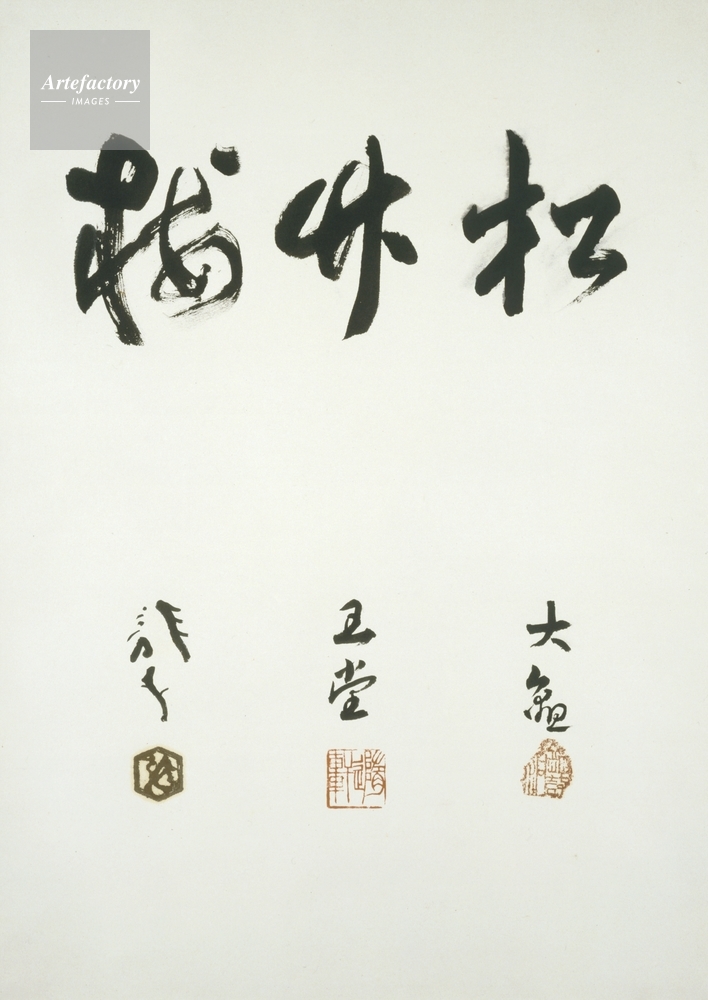 Artefactory
IMAGES
松竹梅
大観
玉堂
龍子